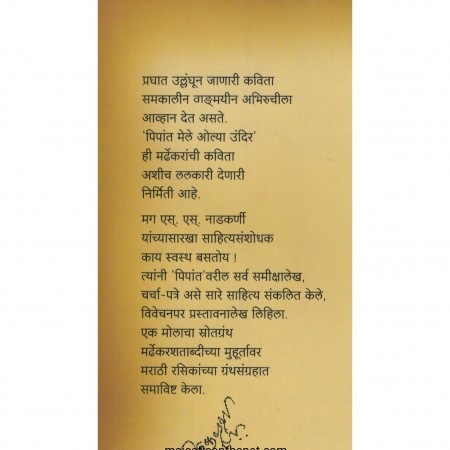 प्रघात उल्लंघून जाणारी कविता
समकालीन वाङ्मयीन अभिरुचीला
आव्हान देत असते.
'पिपांत मेले ओल्या उंदिर'
ही मर्ढेकरांची कविता
अशीच ललकारी देणारी
निर्मिती आहे.
मग एस्. एस्. नाडकर्णी
यांच्यासारखा साहित्यसंशोधक
काय स्वस्थ बसतोय !
त्यांनी 'पिपांत'वरील सर्व समीक्षालेख,
चर्चा-पत्रे असे सारे साहित्य संकलित केले,
विवेचनपर प्रस्तावनालेख लिहिला.
एक मोलाचा स्रोतग्रंथ
मर्ढेकरशताब्दीच्या मुहूर्तावर
मराठी रसिकांच्या ग्रंथसंग्रहात
समाविष्ट केला.